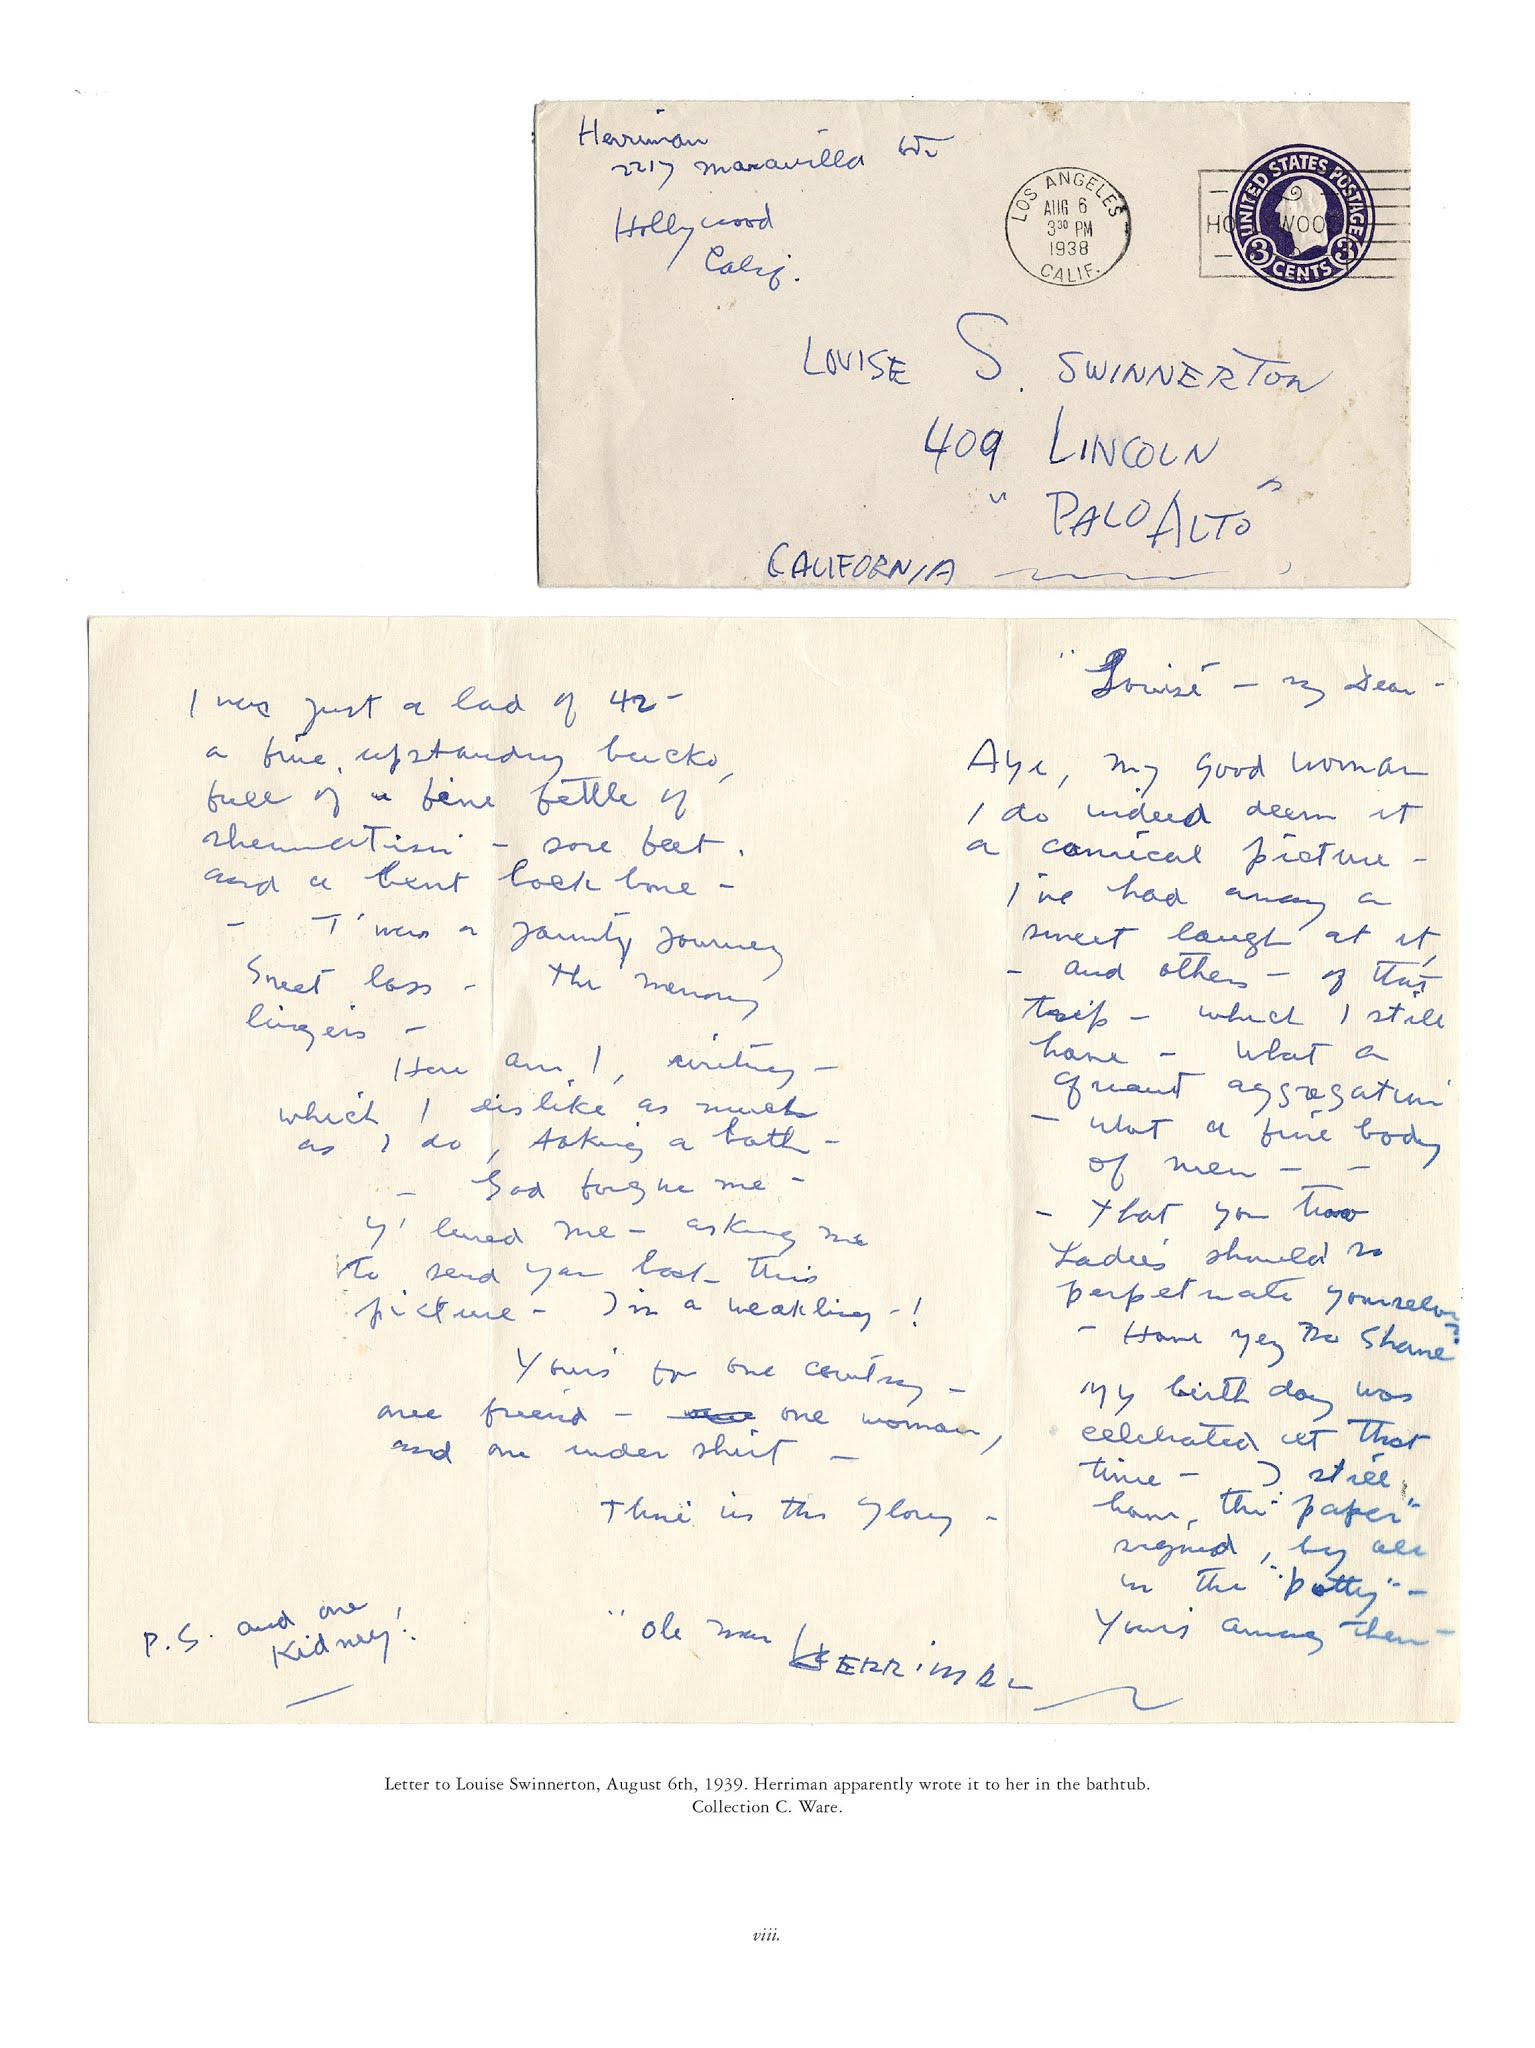 Herriman
2217 Maravilla
Hollywood
Calif.
LOS ANGELES
AUG 6
3 30 PM
1938
CALIF.
HOLLYWOOD
UNITED STATES POSTAGE
3 CENTS 3
LOUISE S. SWINNERTON
409 LINCOLN
" PALO ALTO "
CALIFORNIA
"Louise — my Dear —
Aye, my good woman
I do indeed deem it
a comical picture —
I've had many a
sweet laugh at it,
— and others — of that
trip — which I still
have — what a
quaint aggregation
— what a fine body
of men — —
— That you two
Ladies should so
perpetuate yourselves
— Have yez no Shame
My birth day was
celebrated at that
time — I still
have, the "paper"
signed, by all
in the "party" —
Yours among them —
I was just a lad of 42 —
a fine, upstanding bucko,
full of a fine fettle of
rheumatism — sore feet,
and a bent back bone —
— T'was a jaunty journey
Sweet lass — the memory
lingers —
Here am I, writing —
which I dislike as much
as I do, taking a bath —
— God forgive me —
Y' lured me — asking me
to send you back this
picture — I'm a weakling —!
Yours for one country —
one friend — one woman,
and one under shirt —
Thine is the glory —
"Ole man HERRIMAN
P.S. and one
Kidney!
Letter to Louise Swinnerton, August 6th, 1939. Herriman apparently wrote it to her in the bathtub.
Collection C. Ware.
viii.